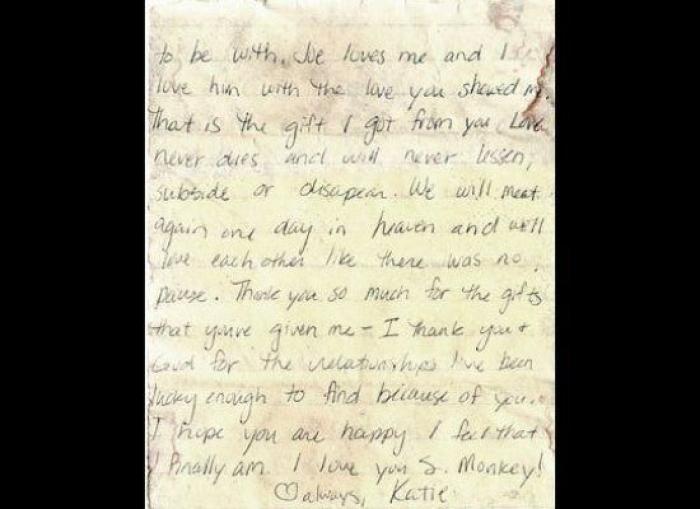 to be with. Joe loves me and I
love him with the love you showed me.
That is the gift I got from you. Love
never dies and will never lessen,
subside or disapear. We will meet
again one day in heaven and we'll
love each other like there was no
pause. Thank you so much for the gifts
that youve given me - I thank you +
God for the relationships I've been
lucky enough to find because of you.
I hope you are happy I feel that
I finally am. I love you S. Monkey!
♡ always, Katie